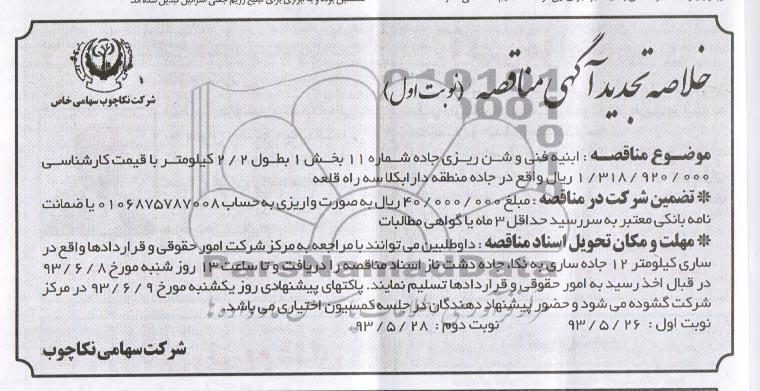 خلاصه تجدید آگهی مناقصه (نوبت اول)
شرکت نکاچوب سهامی خاص
موضوع مناقصه : ابنیه فنی و شن ریزی جاده شماره ۱۱ بخش ۱ بطول ۲/۲ کیلومتر با قیمت کارشناسی
۱/۳۱۸/۹۲۰/۰۰۰ ریال واقع در جاده منطقه دارابکلا سه راه قلعه
* تضمین شرکت در مناقصه : مبلغ ۴۰/۰۰۰/۰۰۰ ریال به صورت واریزی به حساب ۰۱۰۶۸۷۵۷۸۷۰۰۸ یا ضمانت
نامه بانکی معتبر به سررسید حداقل ۳ ماه یا گواهی مطالبات
* مهلت و مکان تحویل اسناد مناقصه : داوطلبین می توانند با مراجعه به مرکز شرکت امور حقوقی و قراردادها واقع در
ساری کیلومتر ۱۲ جاده ساری به نکا، جاده دشت ناز اسناد مناقصه را دریافت و تا ساعت ۱۳ روز شنبه مورخ ۹۳/۶/۸
در قبال اخذ رسید به امور حقوقی و قراردادها تسلیم نمایند. پاکتهای پیشنهادی روز یکشنبه مورخ ۹۳/۶/۹ در مرکز
شرکت گشوده می شود و حضور پیشنهاد دهندگان در جلسه کمسیون اختیاری می باشد.
نوبت اول : ۹۳/۵/۲۶ نوبت دوم : ۹۳/۵/۲۸
شرکت سهامی نکاچوب
ParsNamadData